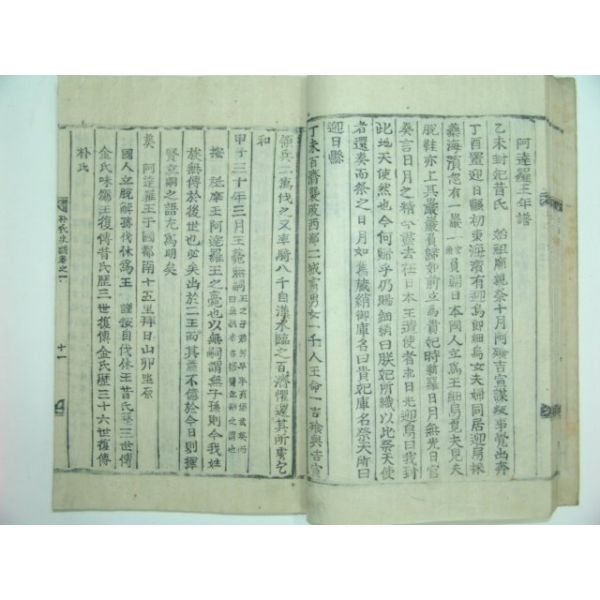 阿達羅王年譜
乙未封妃昔氏 始祖廟親祭十月阿飡吉宣謀叛事覺出奔
丁酉置迎日縣初東海濱有迎烏郞細烏女夫婦同居迎烏採
藻海濱忽有一巖
員歸日本國人立爲王細烏覓夫見夫
脫鞋亦上其巖巖負歸如前立爲貴妃時新羅日月無光日官
奏言日月之精今去在日本王遣使者求日光迎烏曰我到
此地天使然也今何歸乎仍賜細綃曰朕妃所織以此祭天使
者還奏而祭之日月如舊藏綃御庫名曰貴妃庫名祭天所曰
迎日縣
丁未百濟襲破西鄙二城虜男女一千人王命一吉飡興宣
領兵二萬伐之又率騎八千自漢水臨之百濟懼還其所虜乞
和
甲子三十年三月王薨
按 祗摩王阿達羅王之薨也以無嗣謂無子孫則今我姓
族無傳於後世也必矣出於二王而其蓋不信於今日則
賢立嗣之語尤爲明矣
葬 阿達羅王于國都南十五里拜日山卯坐原
國人立脫解孫伐休爲王 謹按自伐休王昔氏 三世傳
金氏味鄒王復傳昔氏歷三世復傳金氏歷三十六世復傳
朴氏
朴氏史譜卷之一
十一